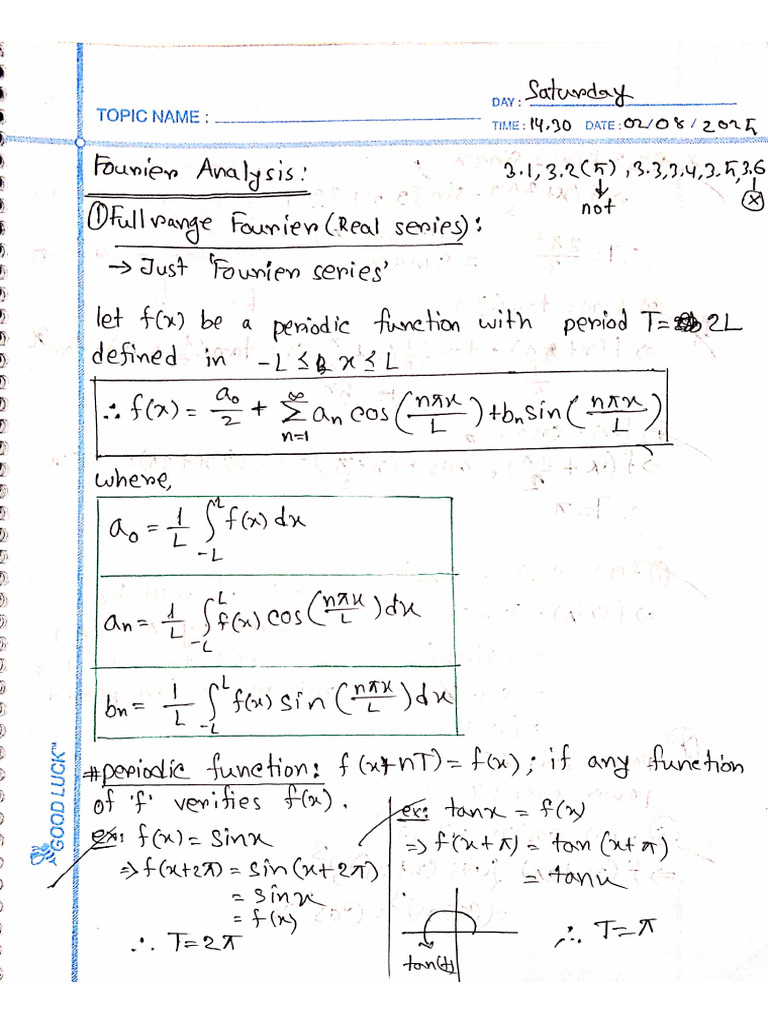 DAY: Saturday
TOPIC NAME:
TIME: 14.30 DATE: 02/08/2025
Fourier Analysis:
3.1, 3.2(5), 3.3, 3.4, 3.5, 3.6
↓
not
ⓧ
① Full range Fourier (Real series):
→ Just 'Fourier series'
let f(x) be a periodic function with period T= 2L
defined in -L ≤ x ≤ L
∴ f(x) = a₀/2 + ∑_{n=1}^{∞} aₙ cos(nπx/L) + bₙ sin(nπx/L)
where,
a₀ = 1/L ∫_{-L}^{L} f(x) dx
aₙ = 1/L ∫_{-L}^{L} f(x) cos(nπx/L) dx
bₙ = 1/L ∫_{-L}^{L} f(x) sin(nπx/L) dx
# periodic function: f(x+nT) = f(x); if any function
of 'f' verifies f(x).
ex: f(x) = sinx
⇒ f(x+2π) = sin(x+2π)
= sinx
= f(x)
∴ T=2π
ex: tanx = f(x)
⇒ f(x+π) = tan(x+π)
= tanx
∴ T=π
tan(+)
GOOD LUCK™